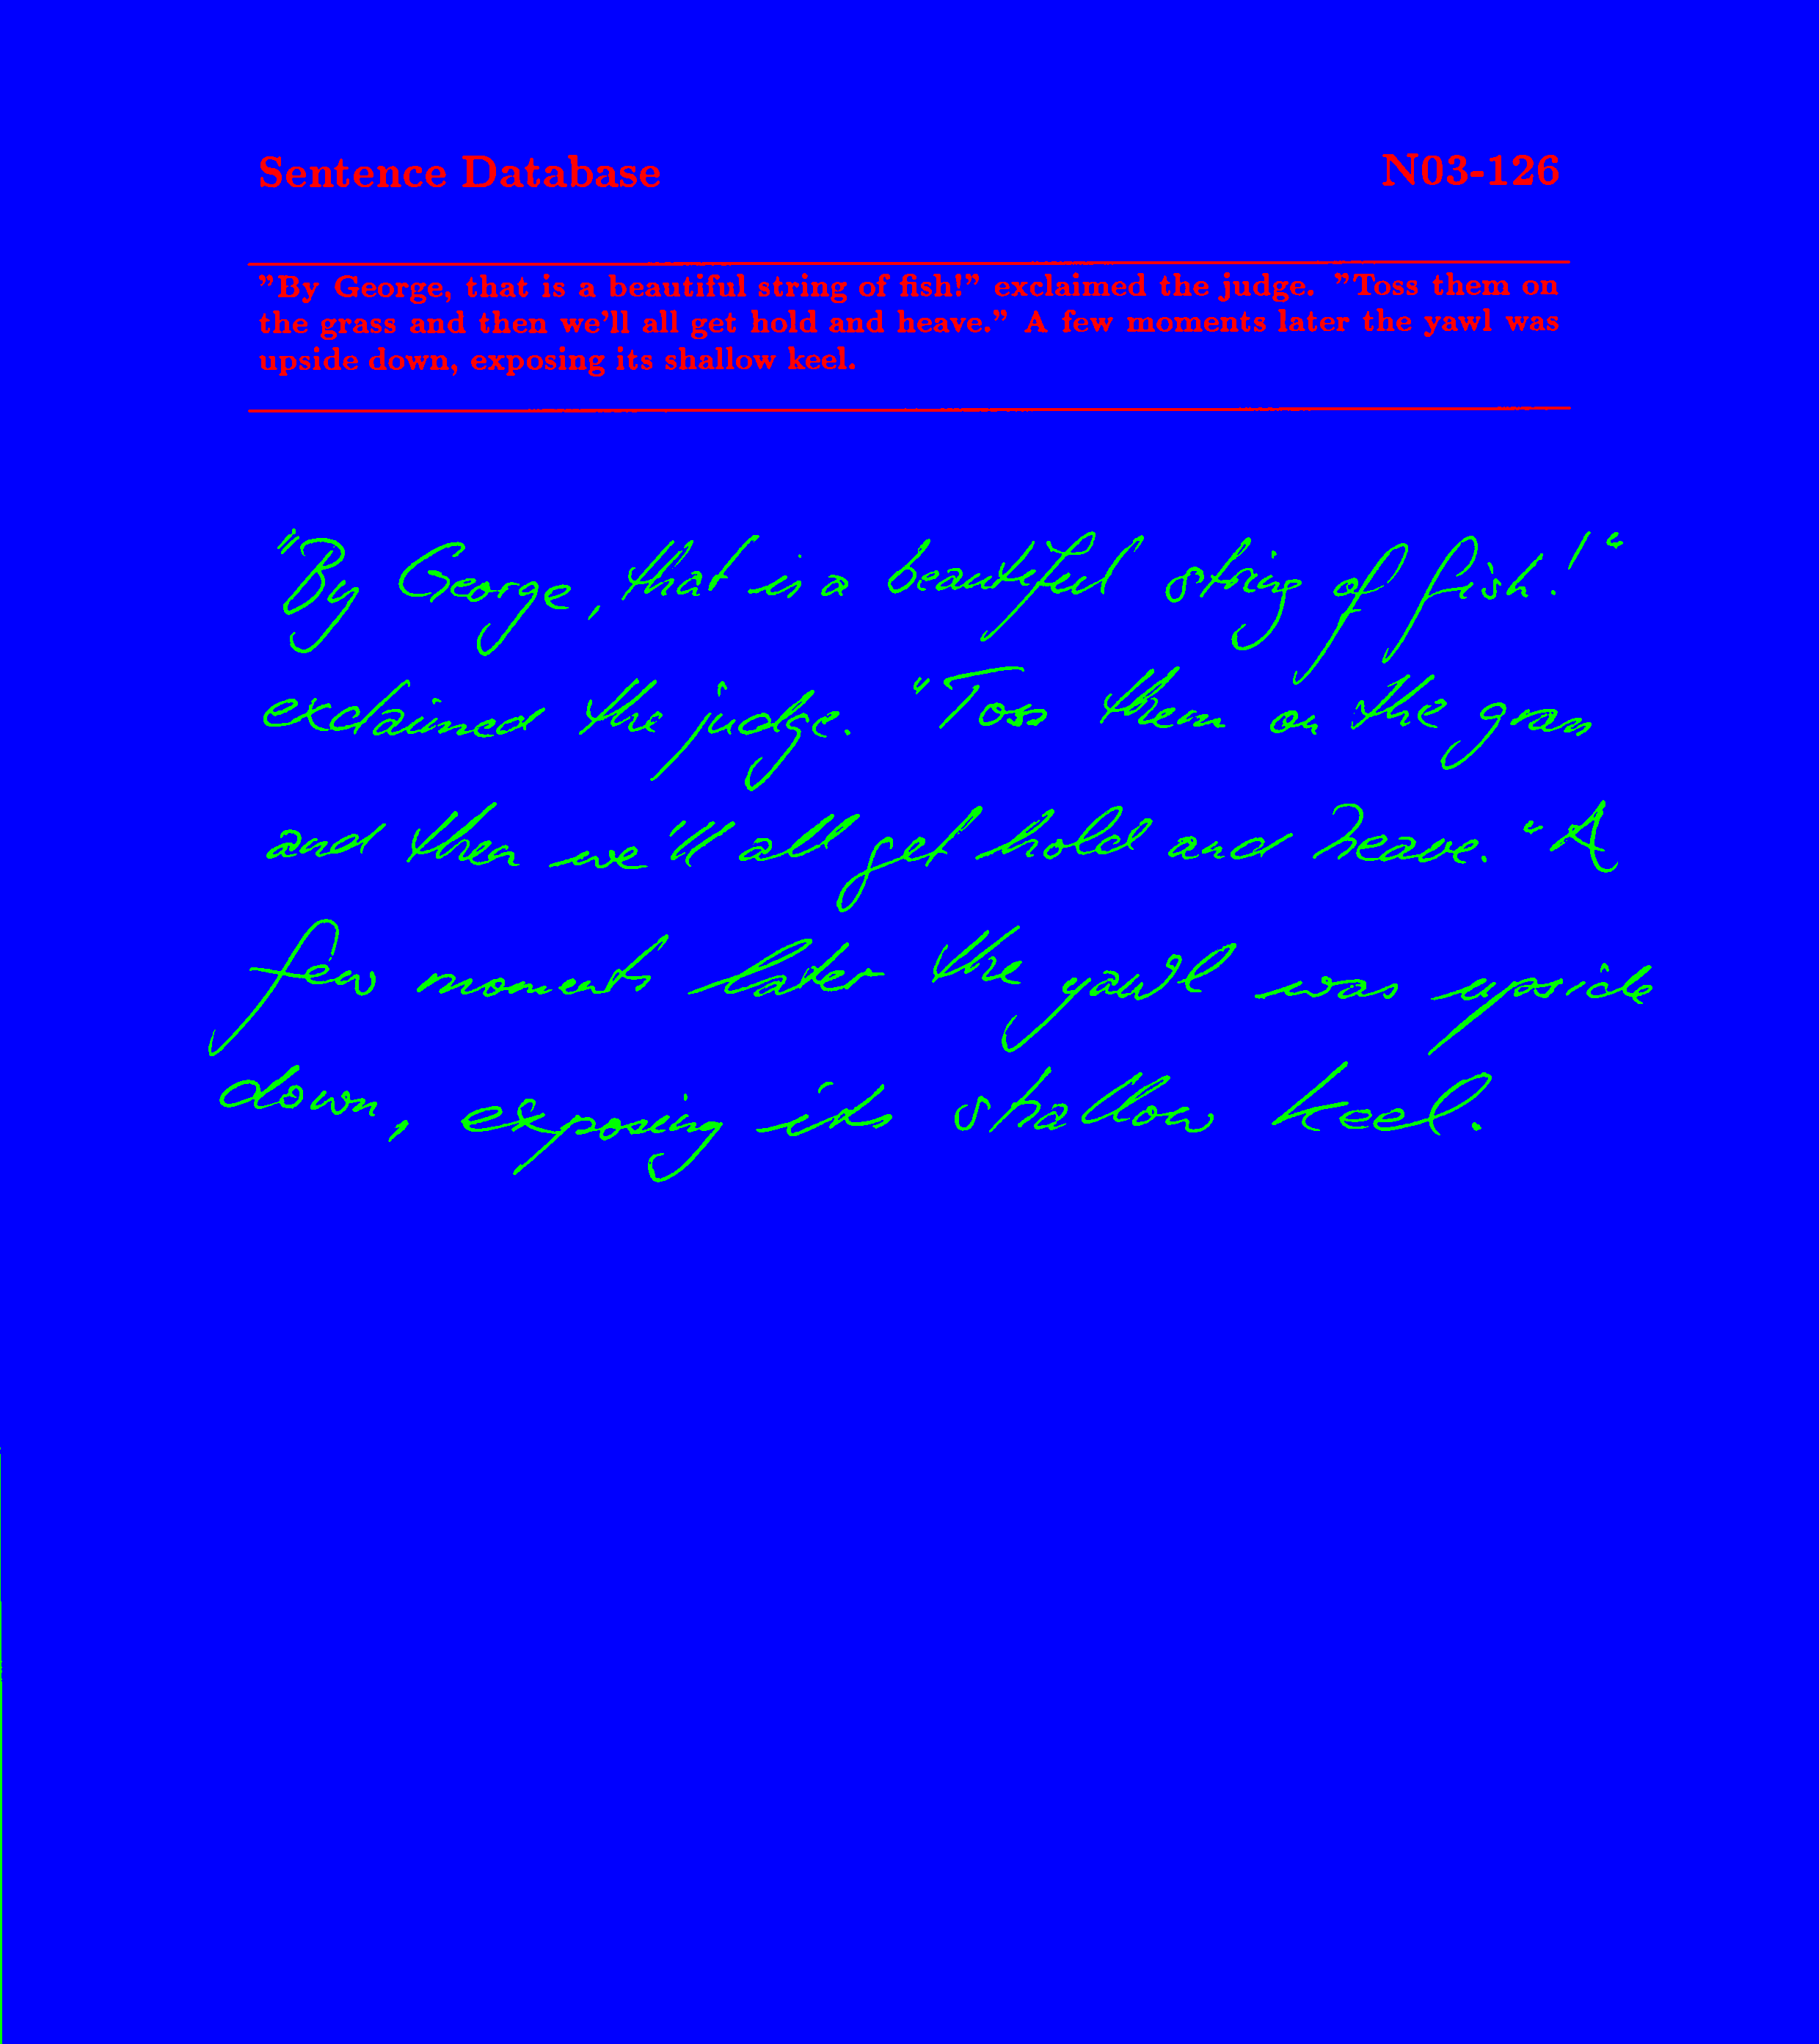 Sentence Database N03-126
"By George, that is a beautiful string of fish!" exclaimed the judge. "Toss them on
the grass and then we'll all get hold and heave." A few moments later the yawl was
upside down, exposing its shallow keel.
"By George, that is a beautiful string of fish!"
exclaimed the judge. "Toss them on the grass
and then we'll all get hold and heave." A
few moments later the yawl was upside
down, exposing its shallow keel.